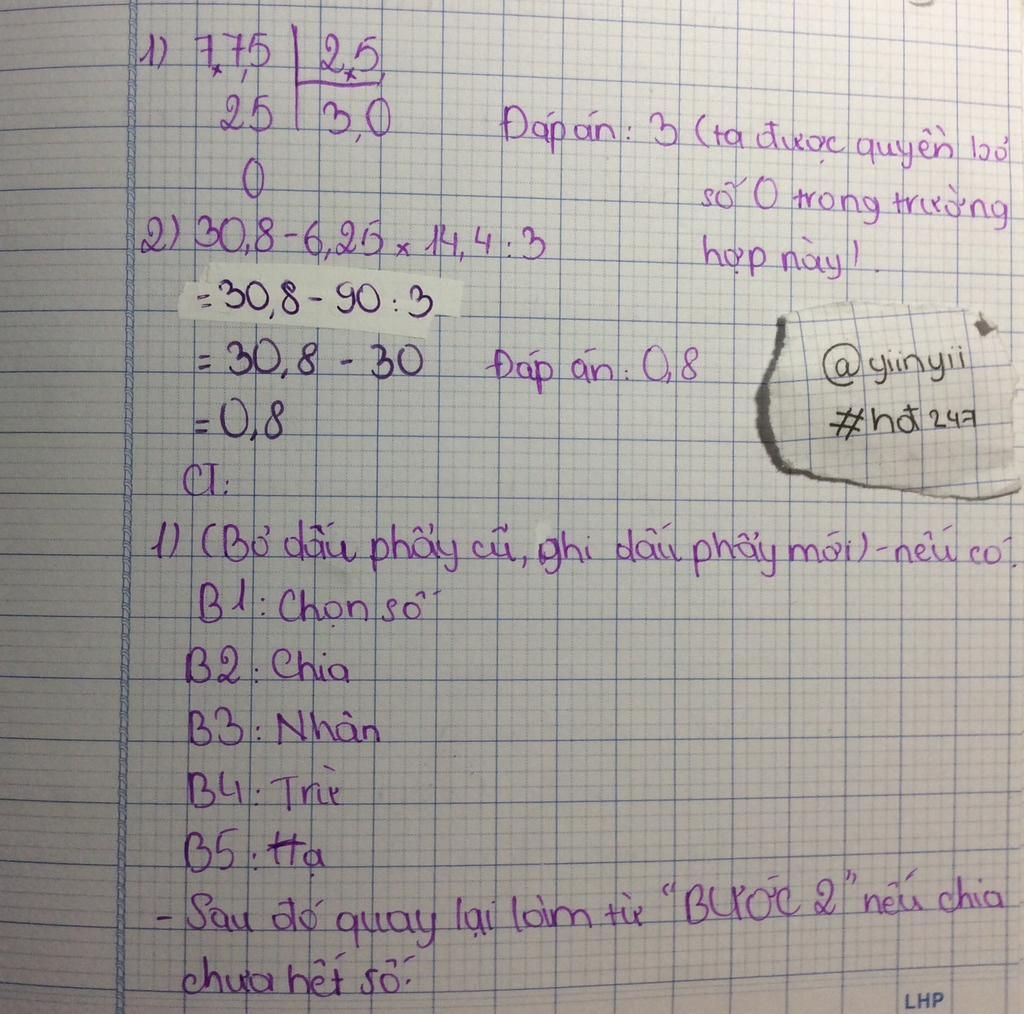 1) 7,75 | 2,5
25 | 3,0
Đáp án: 3 (ta được quyền bỏ
0
số 0 trong trường
2) 30,8 - 6,25 x 14,4 : 3
hợp này).
= 30,8 - 90 : 3
= 30,8 - 30 Đáp án: 0,8
= 0,8
@yiinyii
#hđ247
CT:
1) (Bỏ dấu phẩy cũ, ghi dấu phẩy mới) - nếu có.
B1: Chọn số
B2: Chia
B3: Nhân
B4: Trừ
B5: Hạ
- Sau đó quay lại làm từ "BƯỚC 2" nếu chia
chưa hết số.
LHP